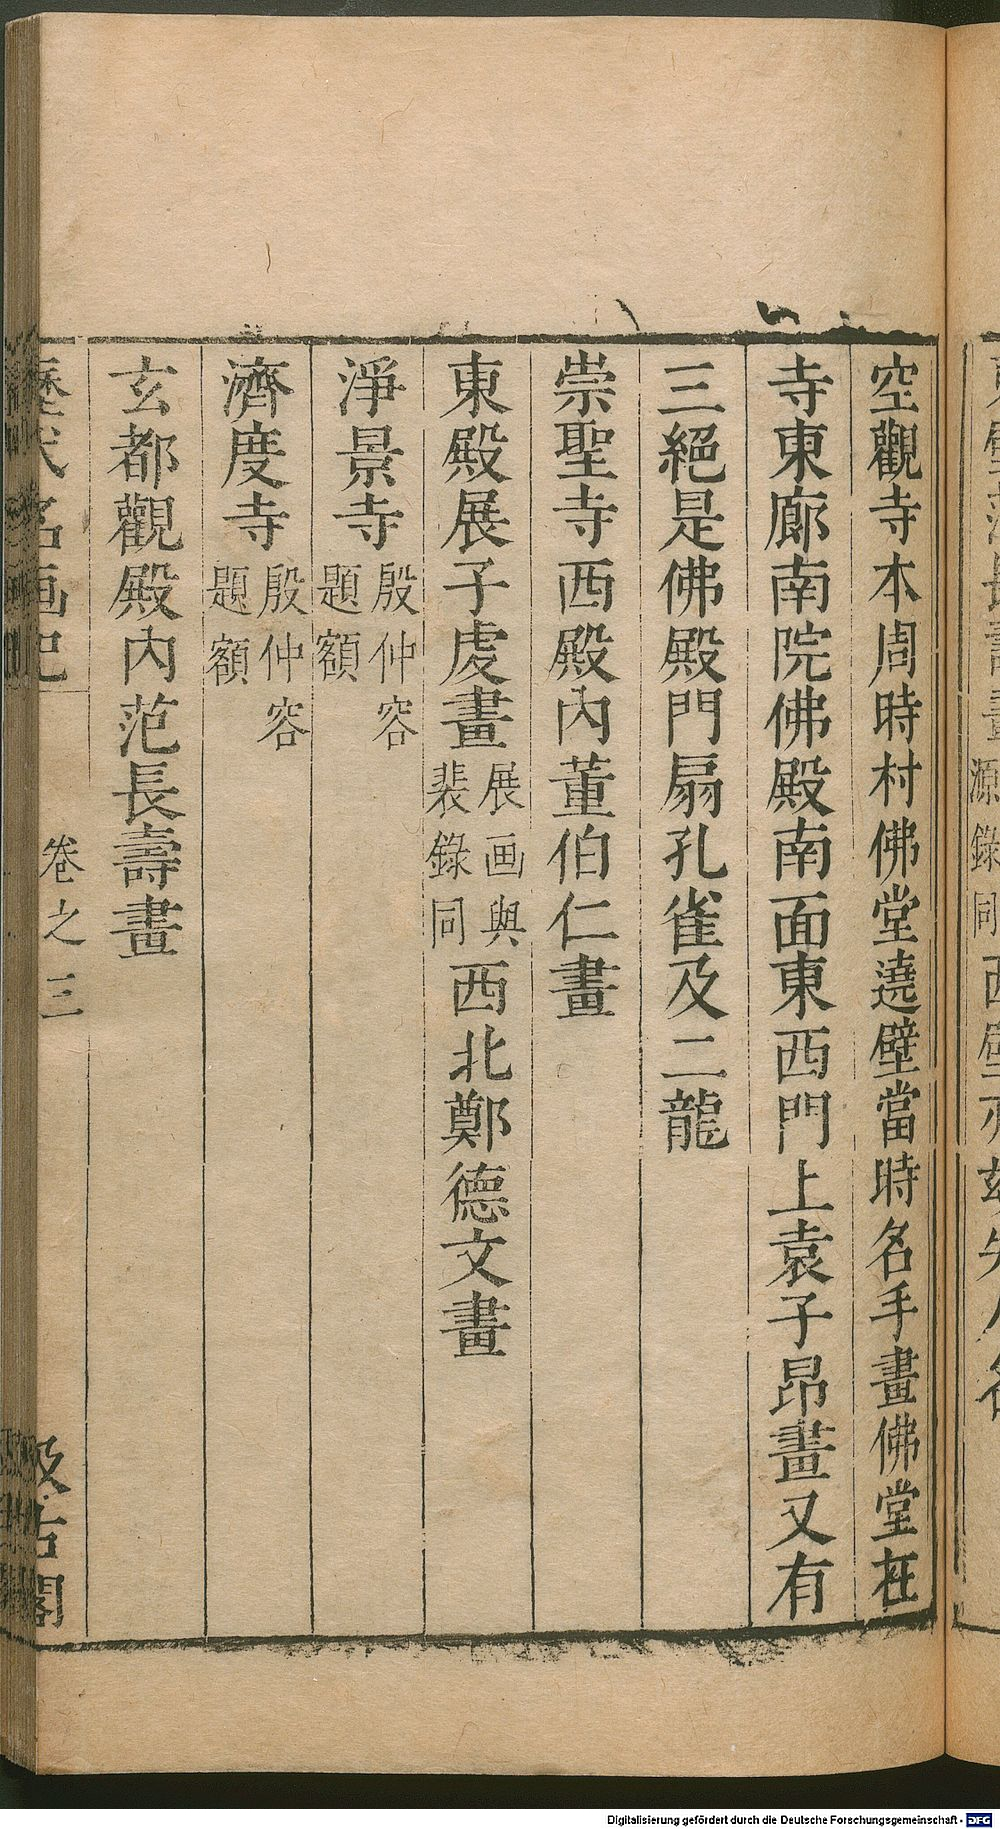 空觀寺本周時村佛堂遶壁當時名手畫佛堂在
寺東廊南院佛殿南面東西門上袁子昂畫又有
三絕是佛殿門扇孔雀及二龍
崇聖寺西殿內董伯仁畫
東殿展子虔畫展画與裴錄同西北鄭德文畫
淨景寺殷仲容題額
濟度寺殷仲容題額
玄都觀殿內范長壽畫
歷代名画記
卷之三
汲古閣
源錄同西壁
Digitalisierung gefördert durch die Deutsche Forschungsgemeinschaft - DFG